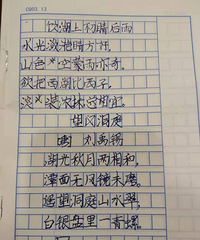 饮湖上初晴后雨
水光潋滟晴方好
山色空蒙雨亦奇。
欲把西湖比西子,
淡妆浓抹总相宜。
望洞庭
唐 刘禹锡
湖光秋月两相和,
潭面无风镜未磨。
遥望洞庭山水翠,
白银盘里一青螺。